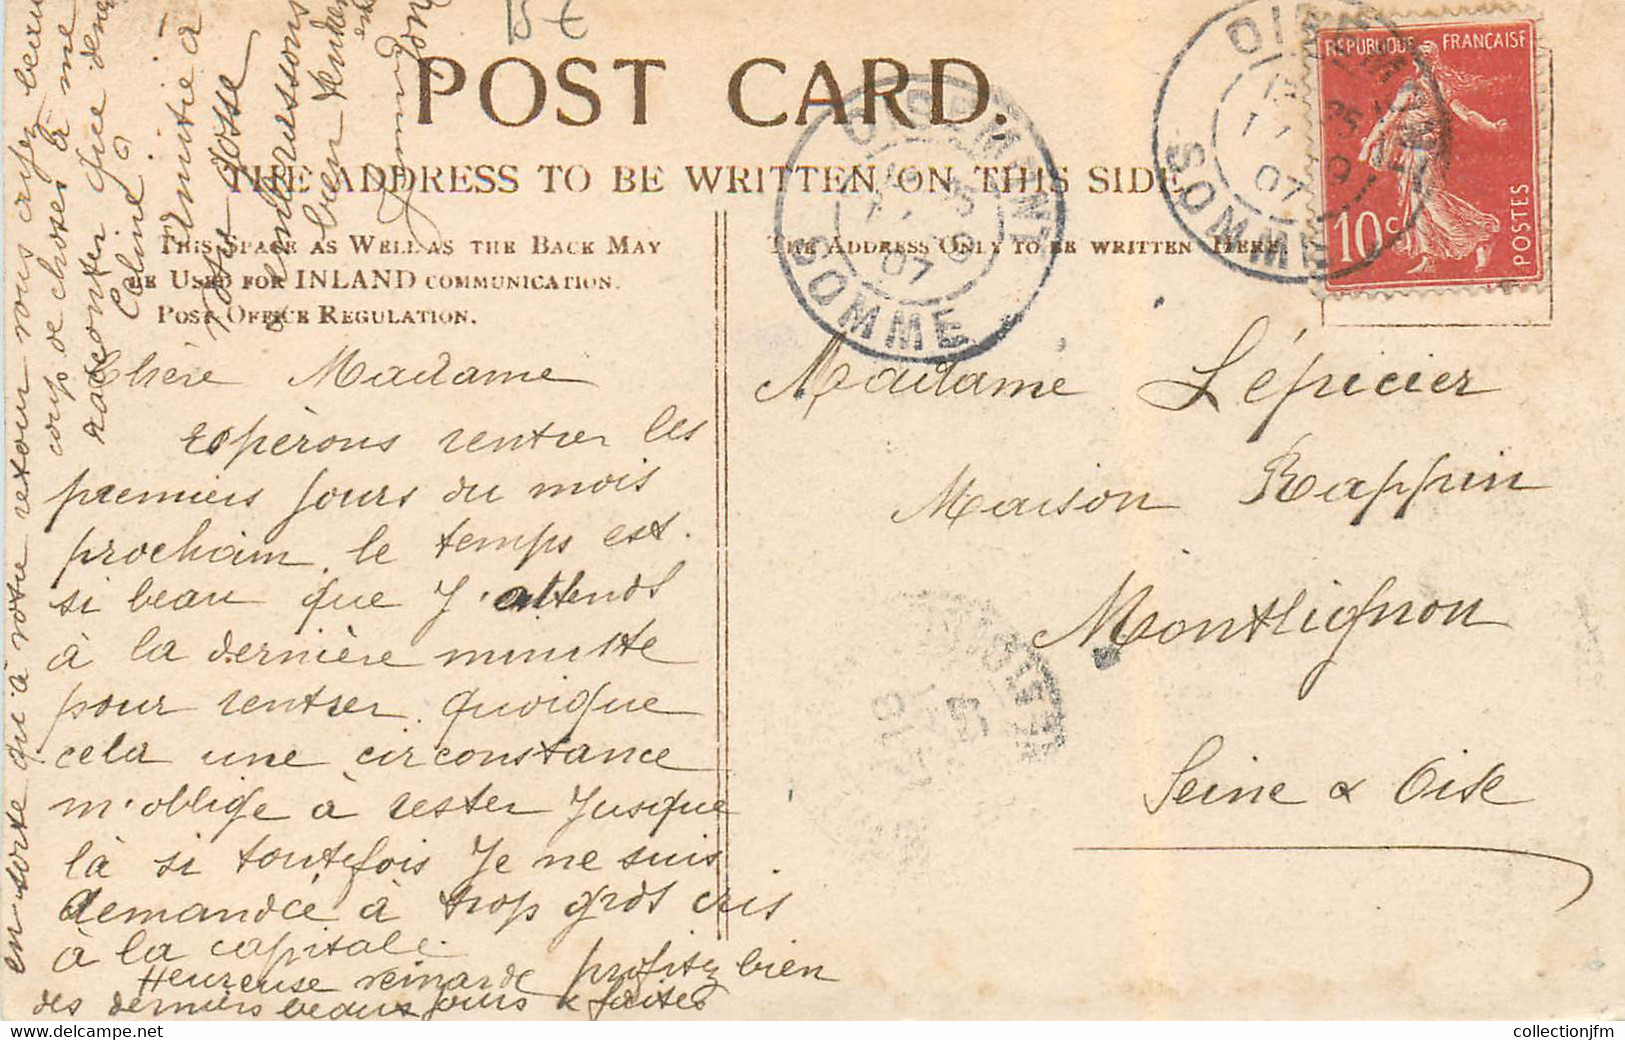 POST CARD.
THE ADDRESS TO BE WRITTEN ON THIS SIDE
THIS SPACE AS WELL AS THE BACK MAY
BE USED FOR INLAND COMMUNICATION.
POST OFFICE REGULATION.
THE ADDRESS ONLY TO BE WRITTEN HERE
REPUBLIQUE FRANÇAISE
10c
POSTES
OISEMONT
SOMME
07
OISEMONT
SOMME
07
Madame Lépicier
Maison Rappin
Montlignon
Seine & Oise
Chère Madame
espérons rentrer les
premiers jours du mois
prochain, le temps est
si beau que j'attends
à la dernière minutte
pour rentrer. quoique
cela une circonstance
m'oblige à rester jusque
là si toutefois je ne suis
demandée à trop gros cris
à la capitale.
Heureuse veinarde profitez bien
des derniers beaux jours & faites
en sorte qu'à votre retour vous ayez beau
coup de choses à me
raconter que
Celine
Amitié à
Gosse
bien
collectionjfm